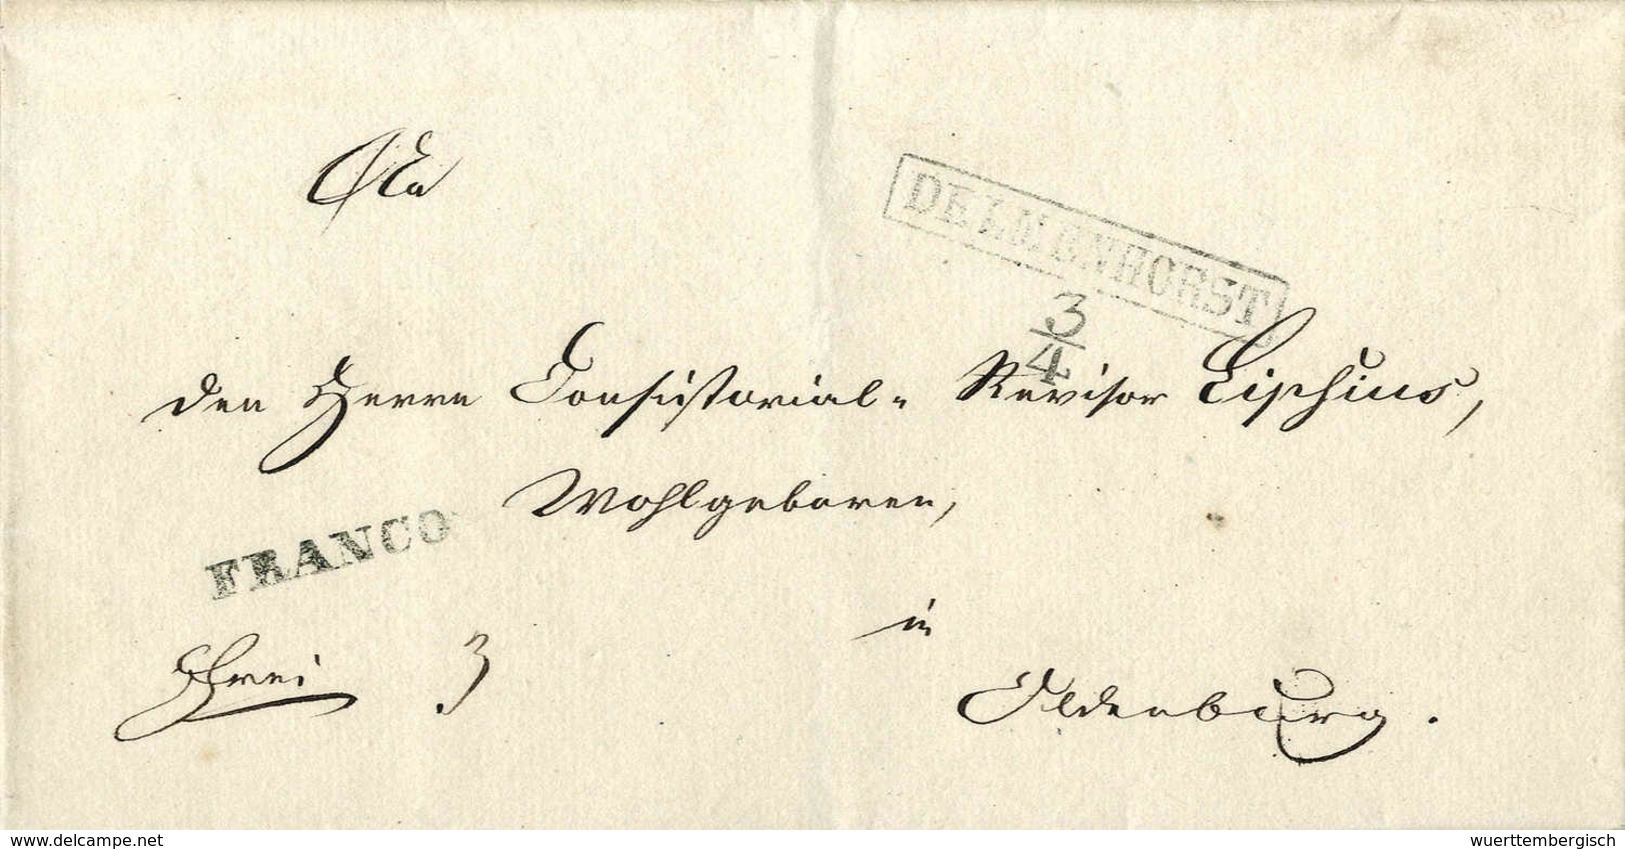 An
DELMENHORST
3/4
den Herrn Consistorial- Revisor
Wohlgeboren,
FRANCO
in
Frei 3
Oldenburg.
delcampe.net
wuerttembergisch